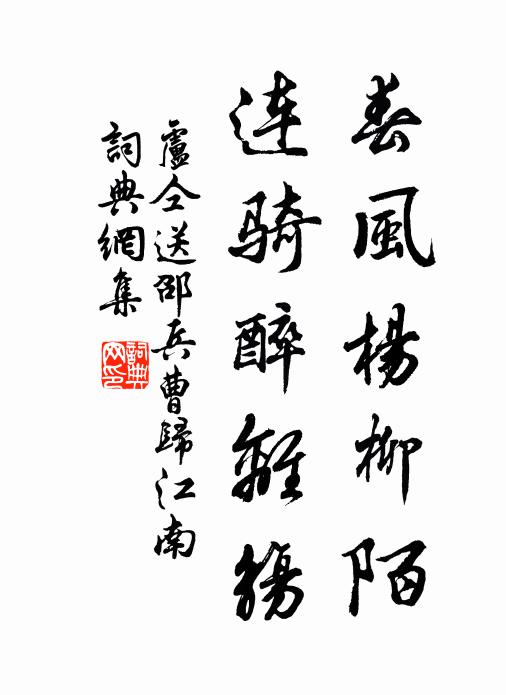 春風楊柳陌
連騎醉離觴
盧仝送邵兵曹歸江南
詞典網集
詞典网印